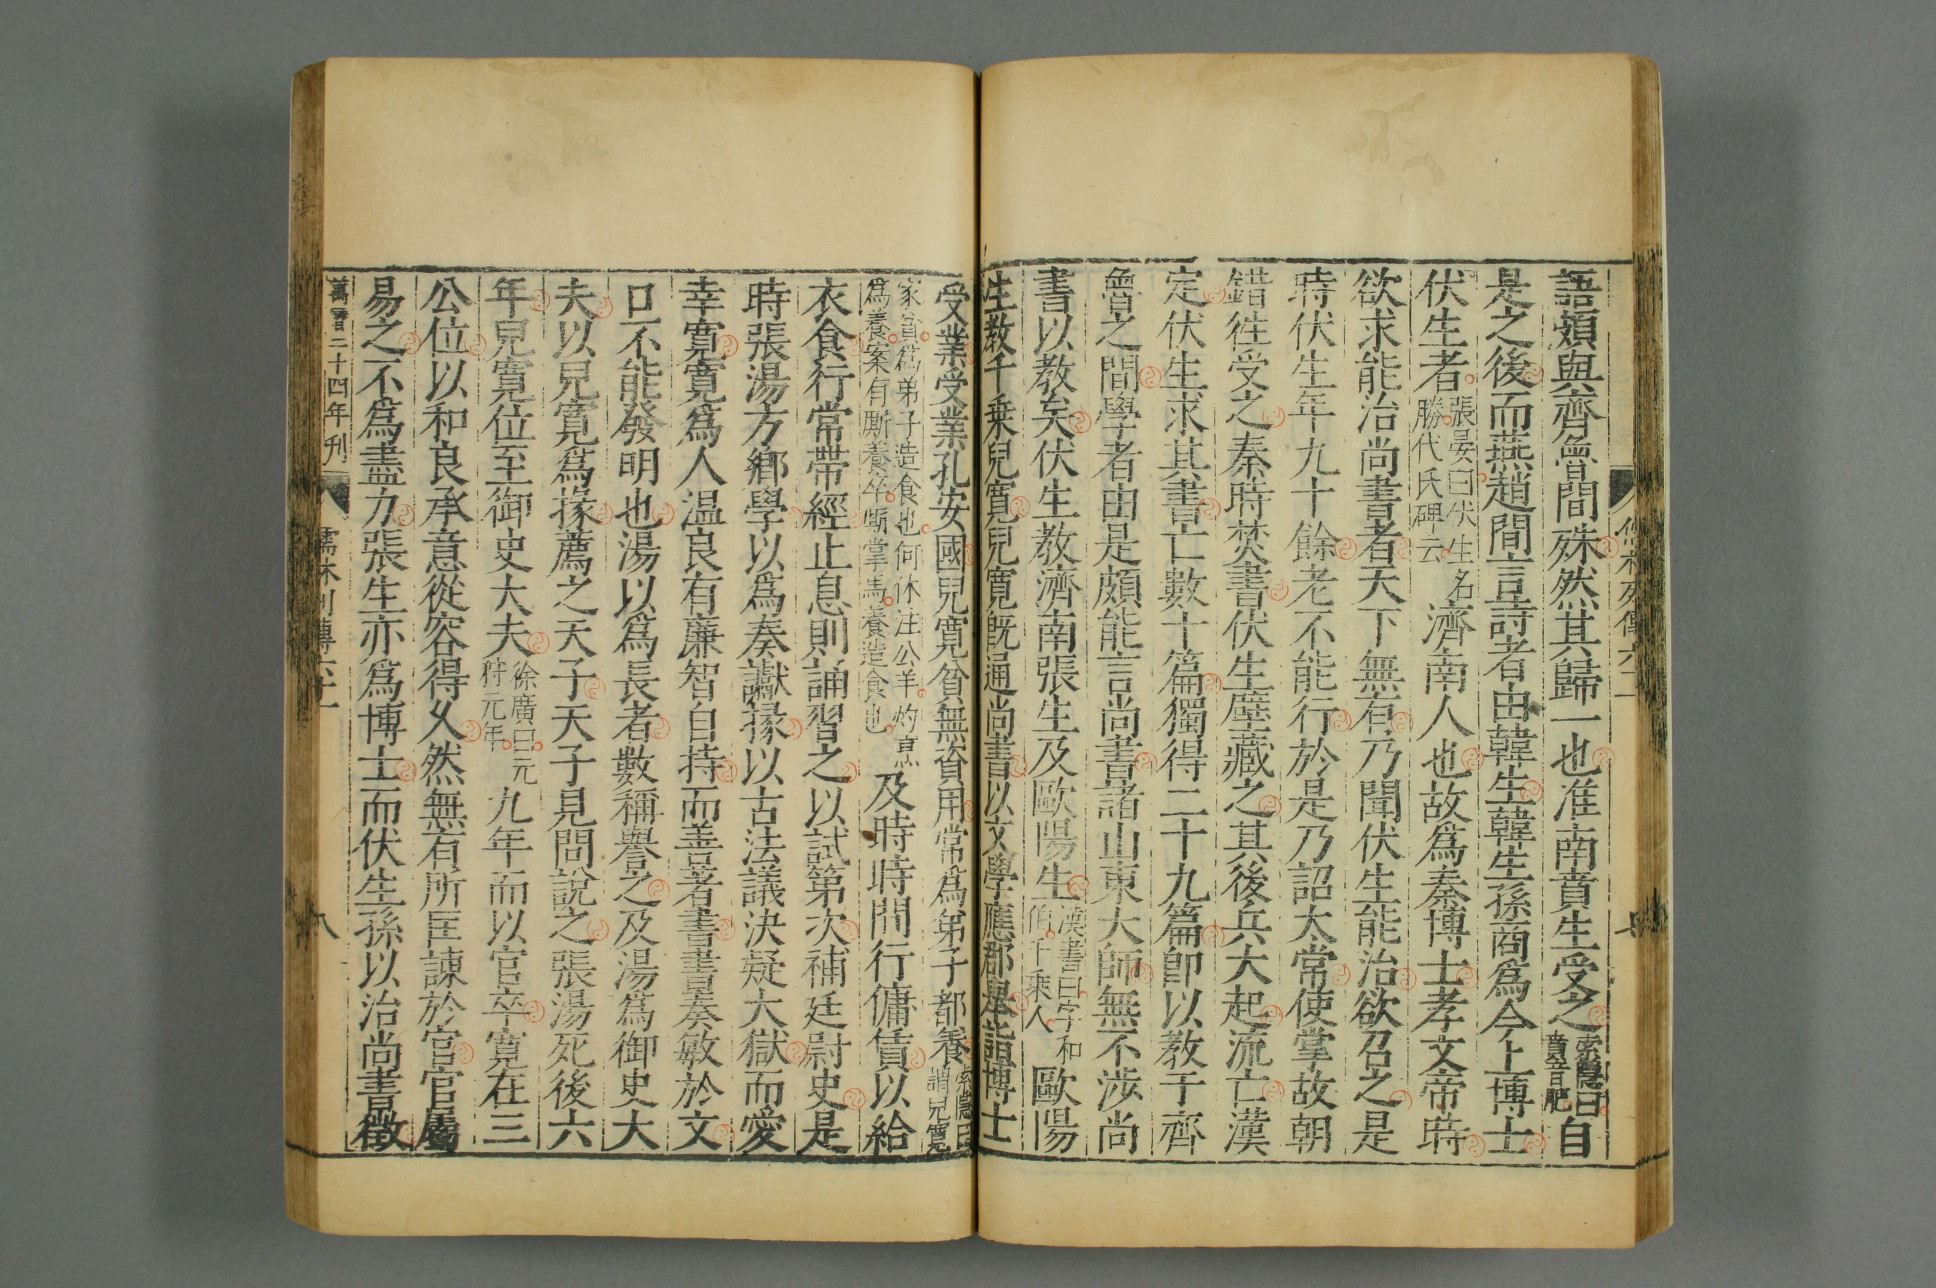 語頗與齊魯間殊然其歸一也淮南賁生受之索隱曰賁音肥自
是之後而燕趙間言詩者由韓生韓生孫商爲今上博士
伏生者張晏曰伏生名勝伏氏碑云濟南人也故爲秦博士孝文帝時
欲求能治尚書者天下無有乃聞伏生能治欲召之是
時伏生年九十餘老不能行於是乃詔太常使掌故朝
錯徃受之秦時焚書伏生壁藏之其後兵大起流亡漢
定伏生求其書亡數十篇獨得二十九篇卽以教于齊
魯之間學者由是頗能言尚書諸山東大師無不涉尚
書以教矣伏生教濟南張生及歐陽生漢書曰字和伯千乘人歐陽
生教千乘兒寬兒寬旣通尚書以文學應郡舉詣博士
受業受業孔安國兒寬貧無資用常爲弟子都養索隱曰謂兒寬
家貧爲弟子造食也何休注公羊灼烹爲養案有厮養卒厮掌馬養造食也及時時間行傭賃以給
衣食行常帶經止息則誦習之以試第次補廷尉史是
時張湯方鄉學以爲奏讞掾以古法議決疑大獄而愛
幸寬寬爲人温良有廉智自持而善著書書奏敏於文
口不能發明也湯以爲長者數稱譽之及湯爲御史大
夫以兒寬爲掾薦之天子天子見問說之張湯死後六
年兒寬位至御史大夫徐廣曰元狩元年九年而以官卒寛在三
公位以和良承意從容得乆然無有所匡諫於官官屬
易之不爲盡力張生亦爲博士而伏生孫以治尚書徵
萬曆二十四年刊
儒林列傳六十一
八